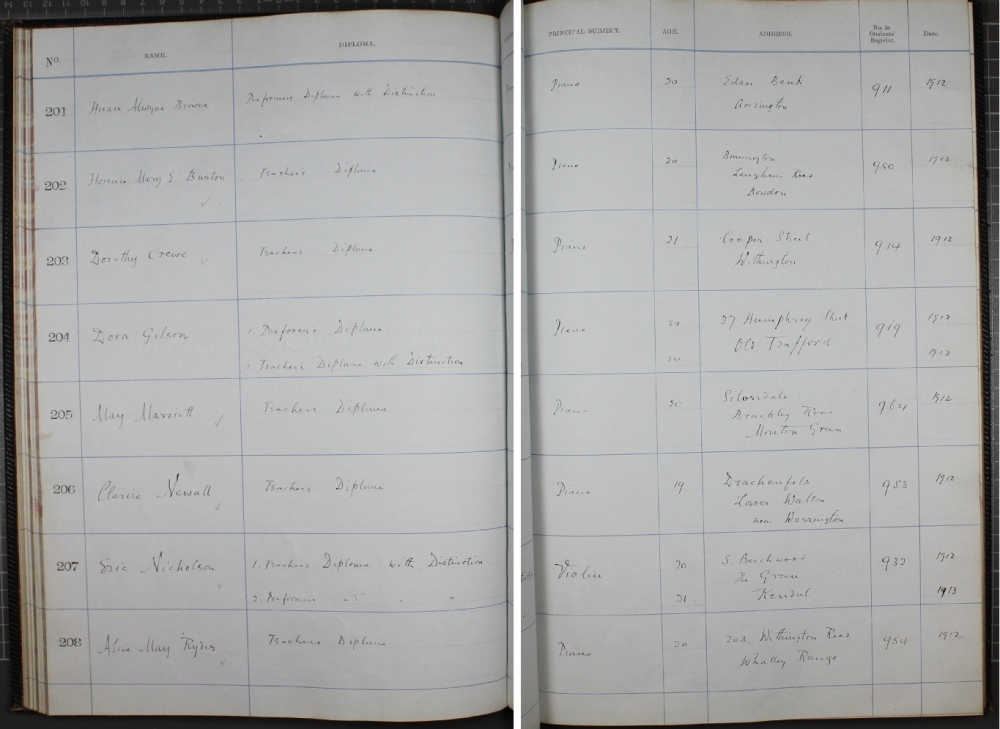 No.
NAME.
DIPLOMA.
201
Horace Alwyne Browne
Performers Diploma with Distinction
202
Florence Mary E Burton
Teachers Diploma
203
Dorothy Crewe
Teachers Diploma
204
Dora Gilson
1. Performers Diploma
Teachers Diploma with Distinction
205
May Marriott
Teachers Diploma
206
Clarice Newall
Teachers Diploma
207
Eric Nicholson
1. Teachers Diploma with Distinction
2. Performers " "
208
Alice May Ryder
Teachers Diploma
PRINCIPAL SUBJECT.
AGE.
ADDRESS.
No. in
Students'
Register.
Date.
Piano
20
Eden Bank
Accrington
911
1912
Piano
20
Bonnington
Langham Road
Bowdon
980
1912
Piano
21
Cooper Street
Withington
914
1912
Piano
24
37 Humphrey Street
Old Trafford
919
1912
24
1912
Piano
20
Silverdale
Brackley Road
Monton Green
964
1912
Piano
19
Drachenfels
Lower Walton
near Warrington
953
1912
Violin
20
5. Beechwood
The Green
Kendal
932
1912
21
1913
Piano
20
203. Withington Road
Whalley Range
954
1912